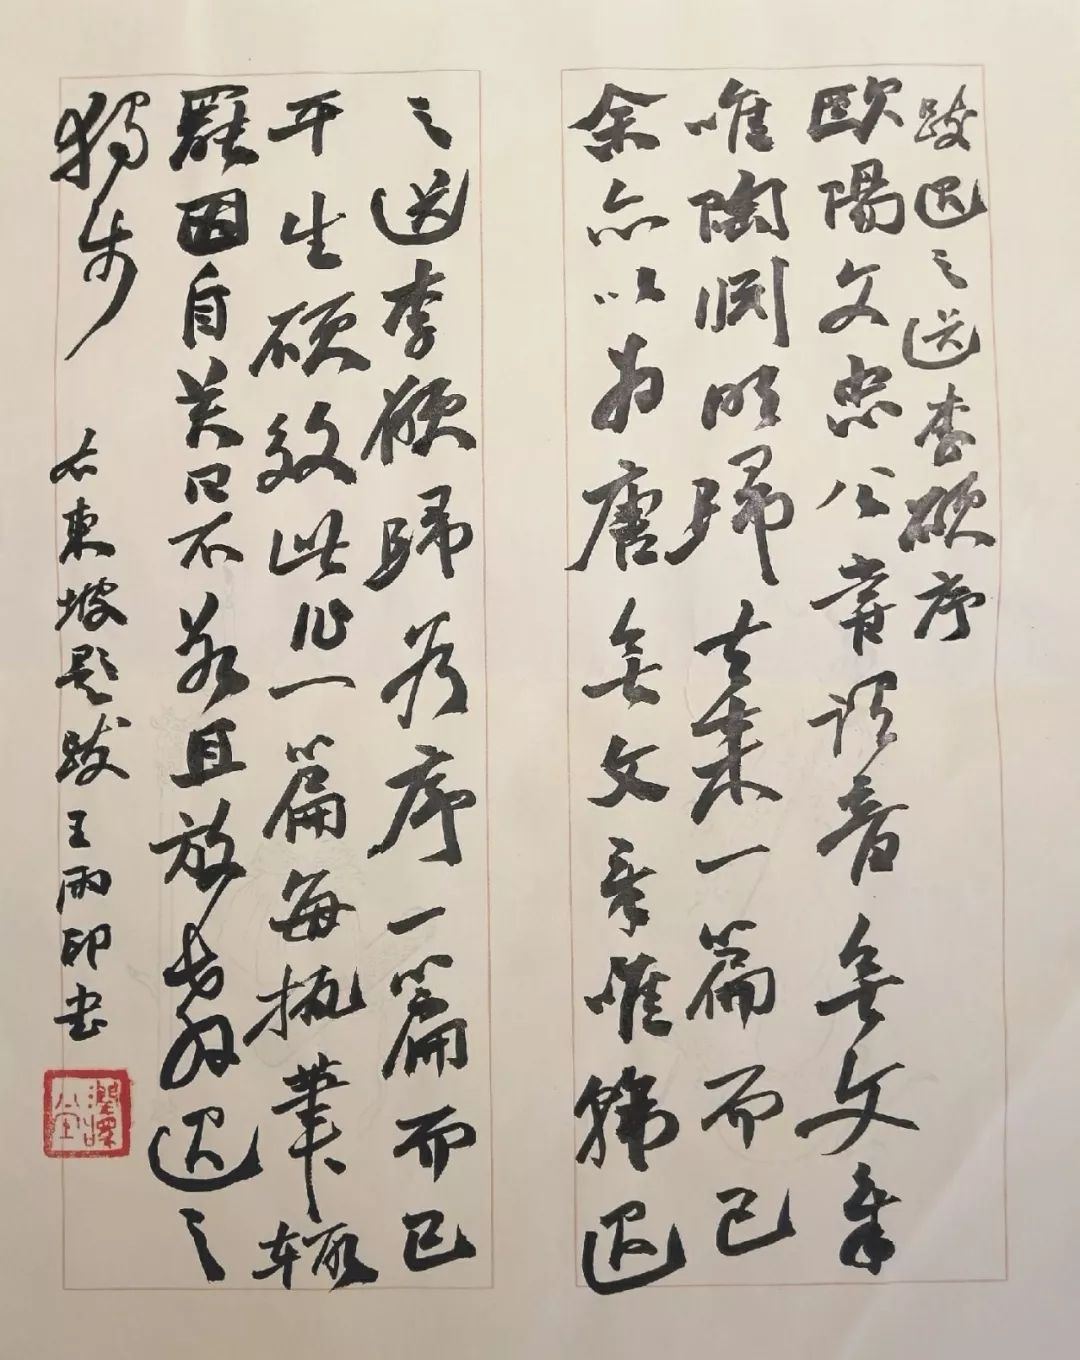 跋退之送李願序
歐陽文忠公嘗謂晉無文章
唯陶淵明歸去來一篇而已
余亦以為唐無文章唯韓退
之送李願歸谷序一篇而已
平生願效此作一篇每執筆輒
罷因自笑曰不若且放教退之
獨步
右東坡題跋王雨印書